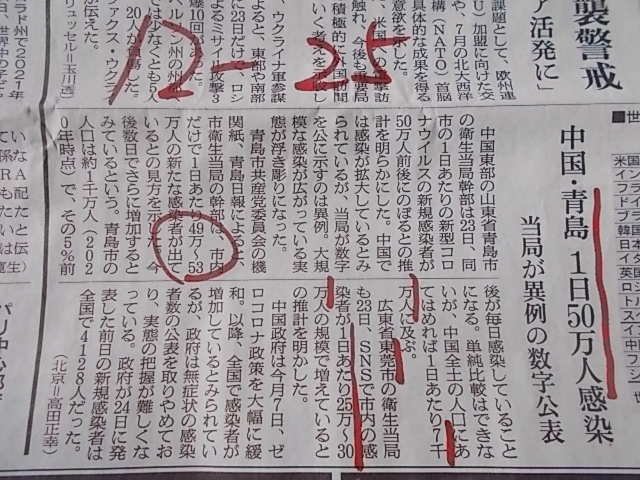 襲警戒
ア活発に」
課題として、欧州連
U)加盟に向けた交
や、7月の北大西洋
(NATO)首脳
具体的な成果を得る
意欲を示した。
ウクライナ軍参謀
12-25
中国・青島 1日50万人感染
当局が異例の数字公表
中国東部の山東省青島市
の衛生当局幹部は23日、同
市の1日あたりの新型コロ
ナウイルスの新規感染者が
50万人前後にのぼるとの推
計を明らかにした。中国で
は感染が拡大しているとみ
られているが、当局が数字
を公に示すのは異例。大規
模な感染が広がっている実
態が浮き彫りになった。
青島市共産党委員会の機
関紙、青島日報によると、
市衛生当局の幹部は、市内
だけで1日あたり49万~53
万人の新たな感染者が出て
いるとの見方を示した。今
後数日でさらに増加すると
みているという。青島市の
人口は約1千万人(202
0年時点)で、その5%前
後が毎日感染していること
になる。単純比較はできな
いが、中国全土の人口にあ
てはめれば1日あたり7千
万人に及ぶ。
広東省東莞市の衛生当局
も23日、SNSで市内の感
染者が1日あたり25万~30
万人の規模で増えていると
の推計を明かした。
中国政府は今月7日、ゼ
ロコロナ政策を大幅に緩
和。以降、全国で感染者が
増加しているとみられてい
るが、政府は無症状の感染
者数の公表を取りやめてお
り、実態の把握が難しくな
っている。政府が24日に発
表した前日の新規感染者は
全国で4128人だった。
(北京=高田正幸)